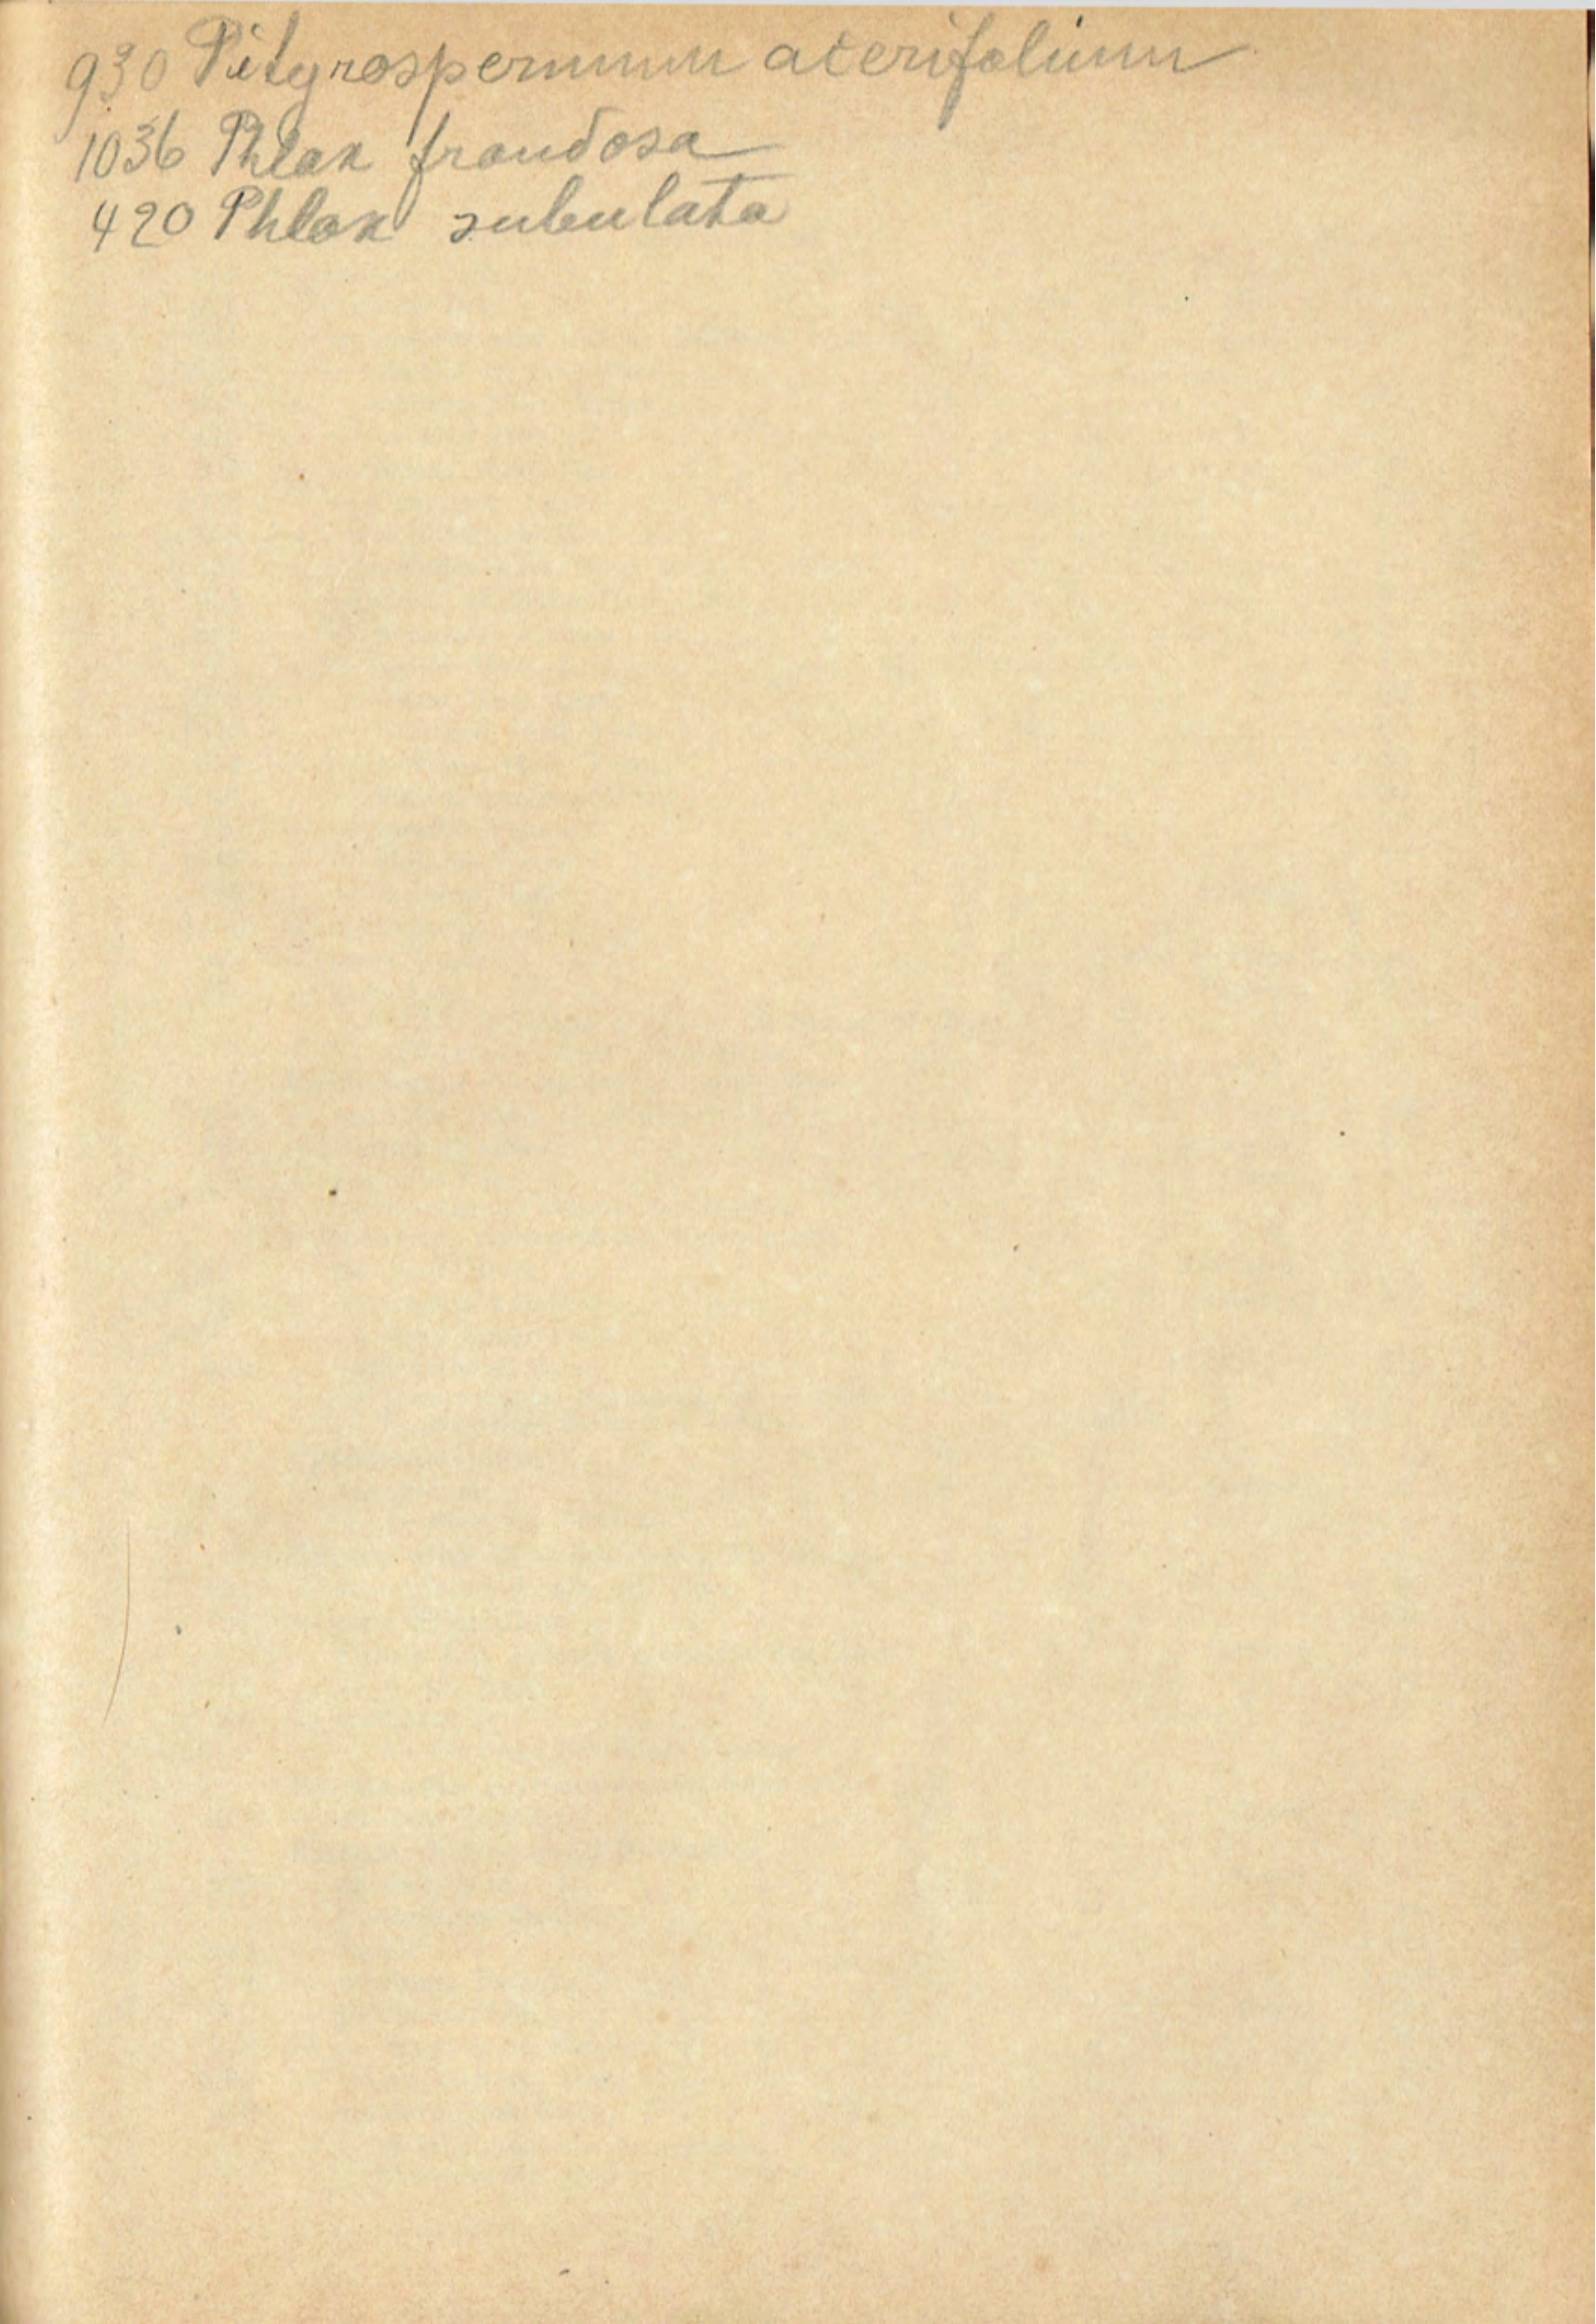 930 Pityrospermum acerifolium
1036 Phlox frondosa
420 Phlox subulata